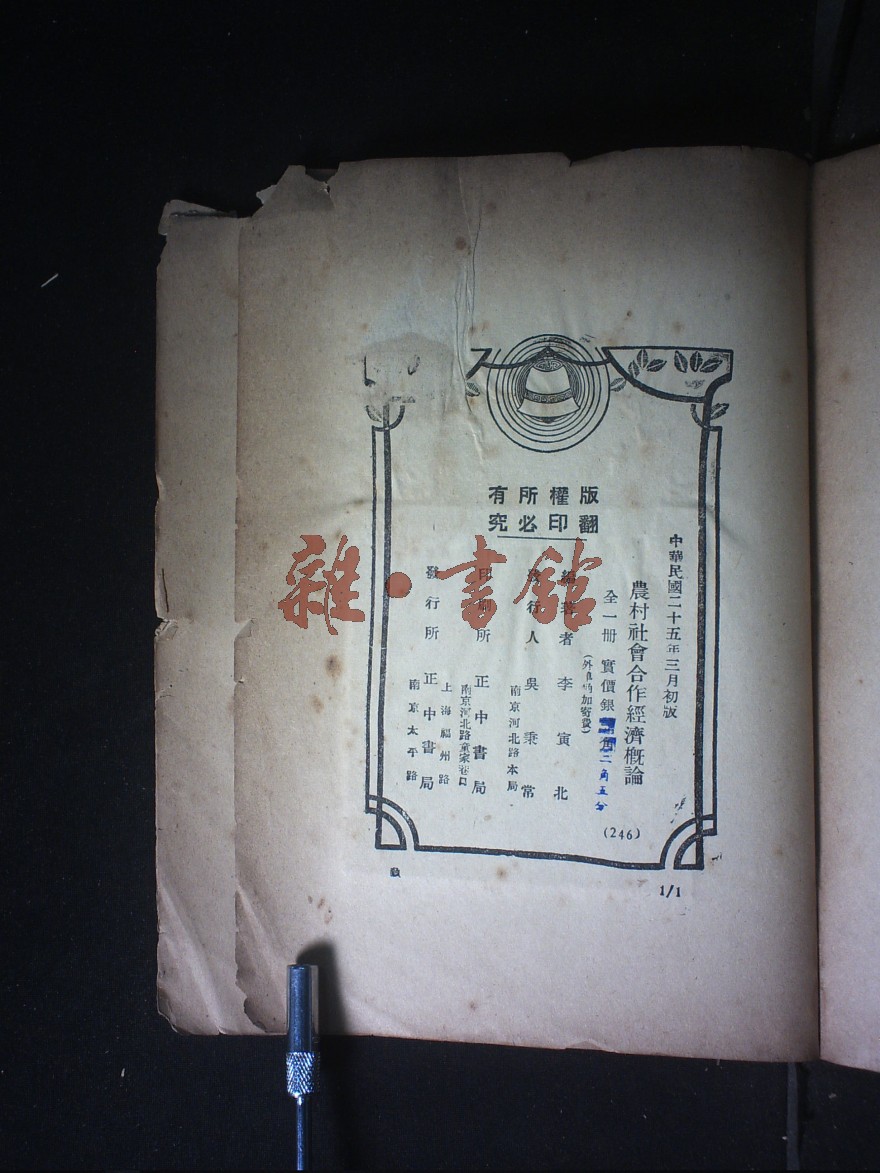 版權所有
翻印必究
中華民國二十五年三月初版
農村社會合作經濟概論
全一冊 實價銀 角二角五分
(外埠酌加寄費)
編著者 李寅北
發行人 吳秉常
南京河北路本局
印刷所 正中書局
南京河北路童家巷口
發行所 正中書局
上海福州路
南京太平路
(246)
1/1
雜·書館